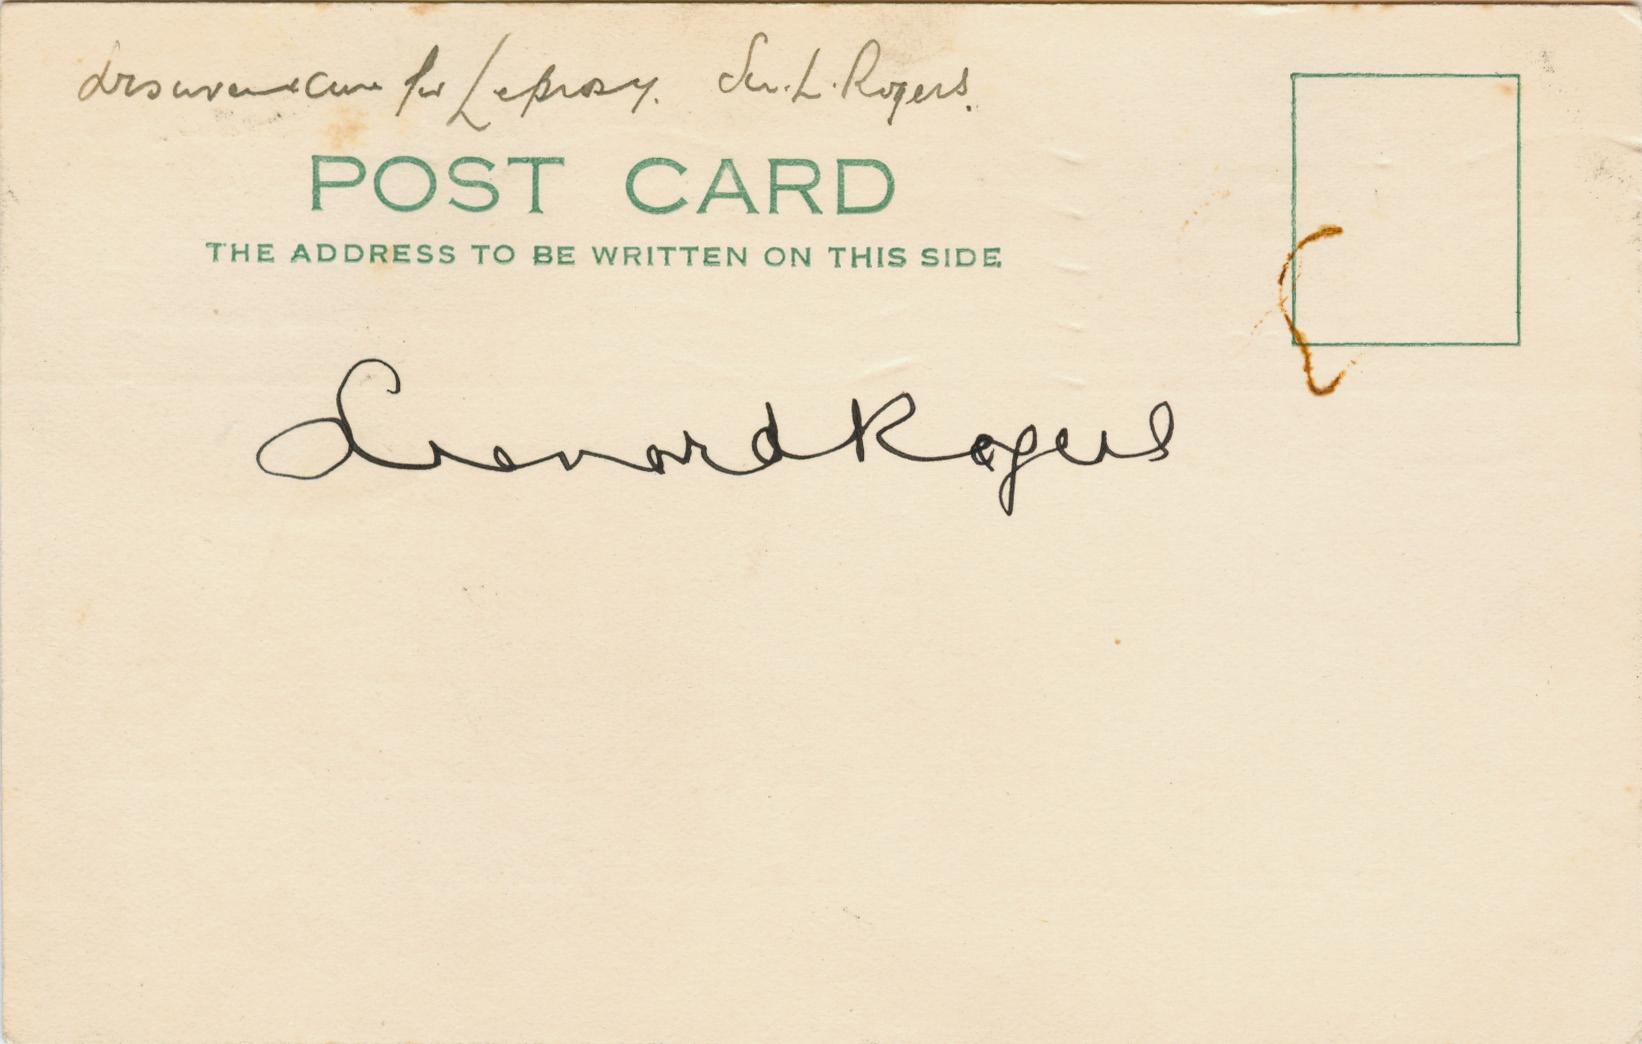 discovered cure for Leprosy. Sir. L. Rogers.
POST CARD
THE ADDRESS TO BE WRITTEN ON THIS SIDE
Leonard Rogers